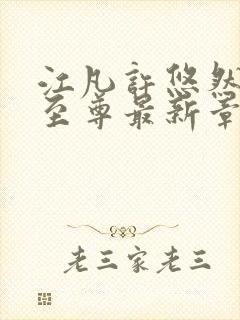 江凡許悠然
至尊最新章
老三家老三